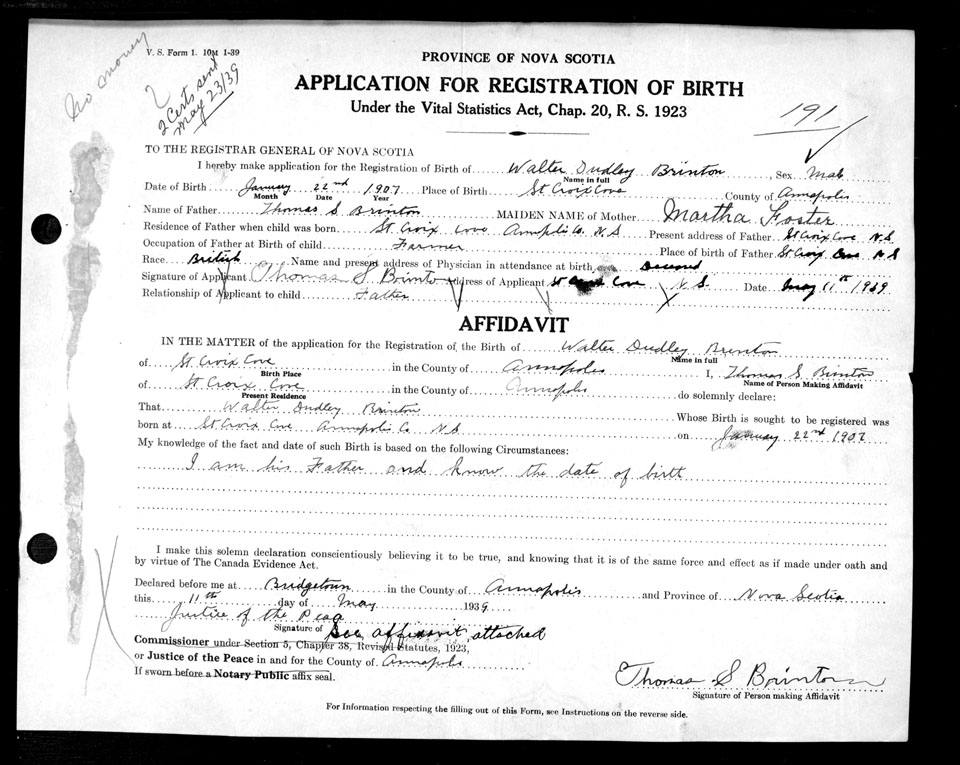 No money
V. S. Form 1. 10M 1-39
2 Certs sent
May 23/39
PROVINCE OF NOVA SCOTIA
APPLICATION FOR REGISTRATION OF BIRTH
Under the Vital Statistics Act, Chap. 20, R. S. 1923
191
TO THE REGISTRAR GENERAL OF NOVA SCOTIA
I hereby make application for the Registration of Birth of Walter Dudley Brinton, Sex Male
Name in full
Date of Birth January 22nd 1907 Place of Birth St Croix Cove County of Annapolis
Month Date Year
Name of Father Thomas S Brinton MAIDEN NAME of Mother Martha Foster
Residence of Father when child was born St Croix Cove Annapolis Co. N S Present address of Father St Croix Cove N.S
Occupation of Father at Birth of child Farmer Place of birth of Father St Croix Cove N S
Race British Name and present address of Physician in attendance at birth
Signature of Applicant Thomas S Brinton Address of Applicant St Croix Cove N S. Date May 11th 1939
Relationship of Applicant to child Father
AFFIDAVIT
IN THE MATTER of the application for the Registration of the Birth of Walter Dudley Brinton
Name in full
of St Croix Cove in the County of Annapolis I, Thomas S Brinton
Birth Place Name of Person Making Affidavit
of St Croix Cove in the County of Annapolis do solemnly declare:
Present Residence
That Walter Dudley Brinton Whose Birth is sought to be registered was
born at St Croix Cove Annapolis Co. N.S on January 22nd 1907
My knowledge of the fact and date of such Birth is based on the following Circumstances:
I am his Father and know the date of birth
I make this solemn declaration conscientiously believing it to be true, and knowing that it is of the same force and effect as if made under oath and
by virtue of The Canada Evidence Act.
Declared before me at Bridgetown in the County of Annapolis and Province of Nova Scotia
this 11th day of May 1939
Justice of the Peace
Signature of See affidavit attached
Commissioner under Section 5, Chapter 38, Revised Statutes, 1923,
or Justice of the Peace in and for the County of Annapolis
If sworn before a Notary Public affix seal.
Thomas S Brinton
Signature of Person making Affidavit
For Information respecting the filling out of this Form, see Instructions on the reverse side.